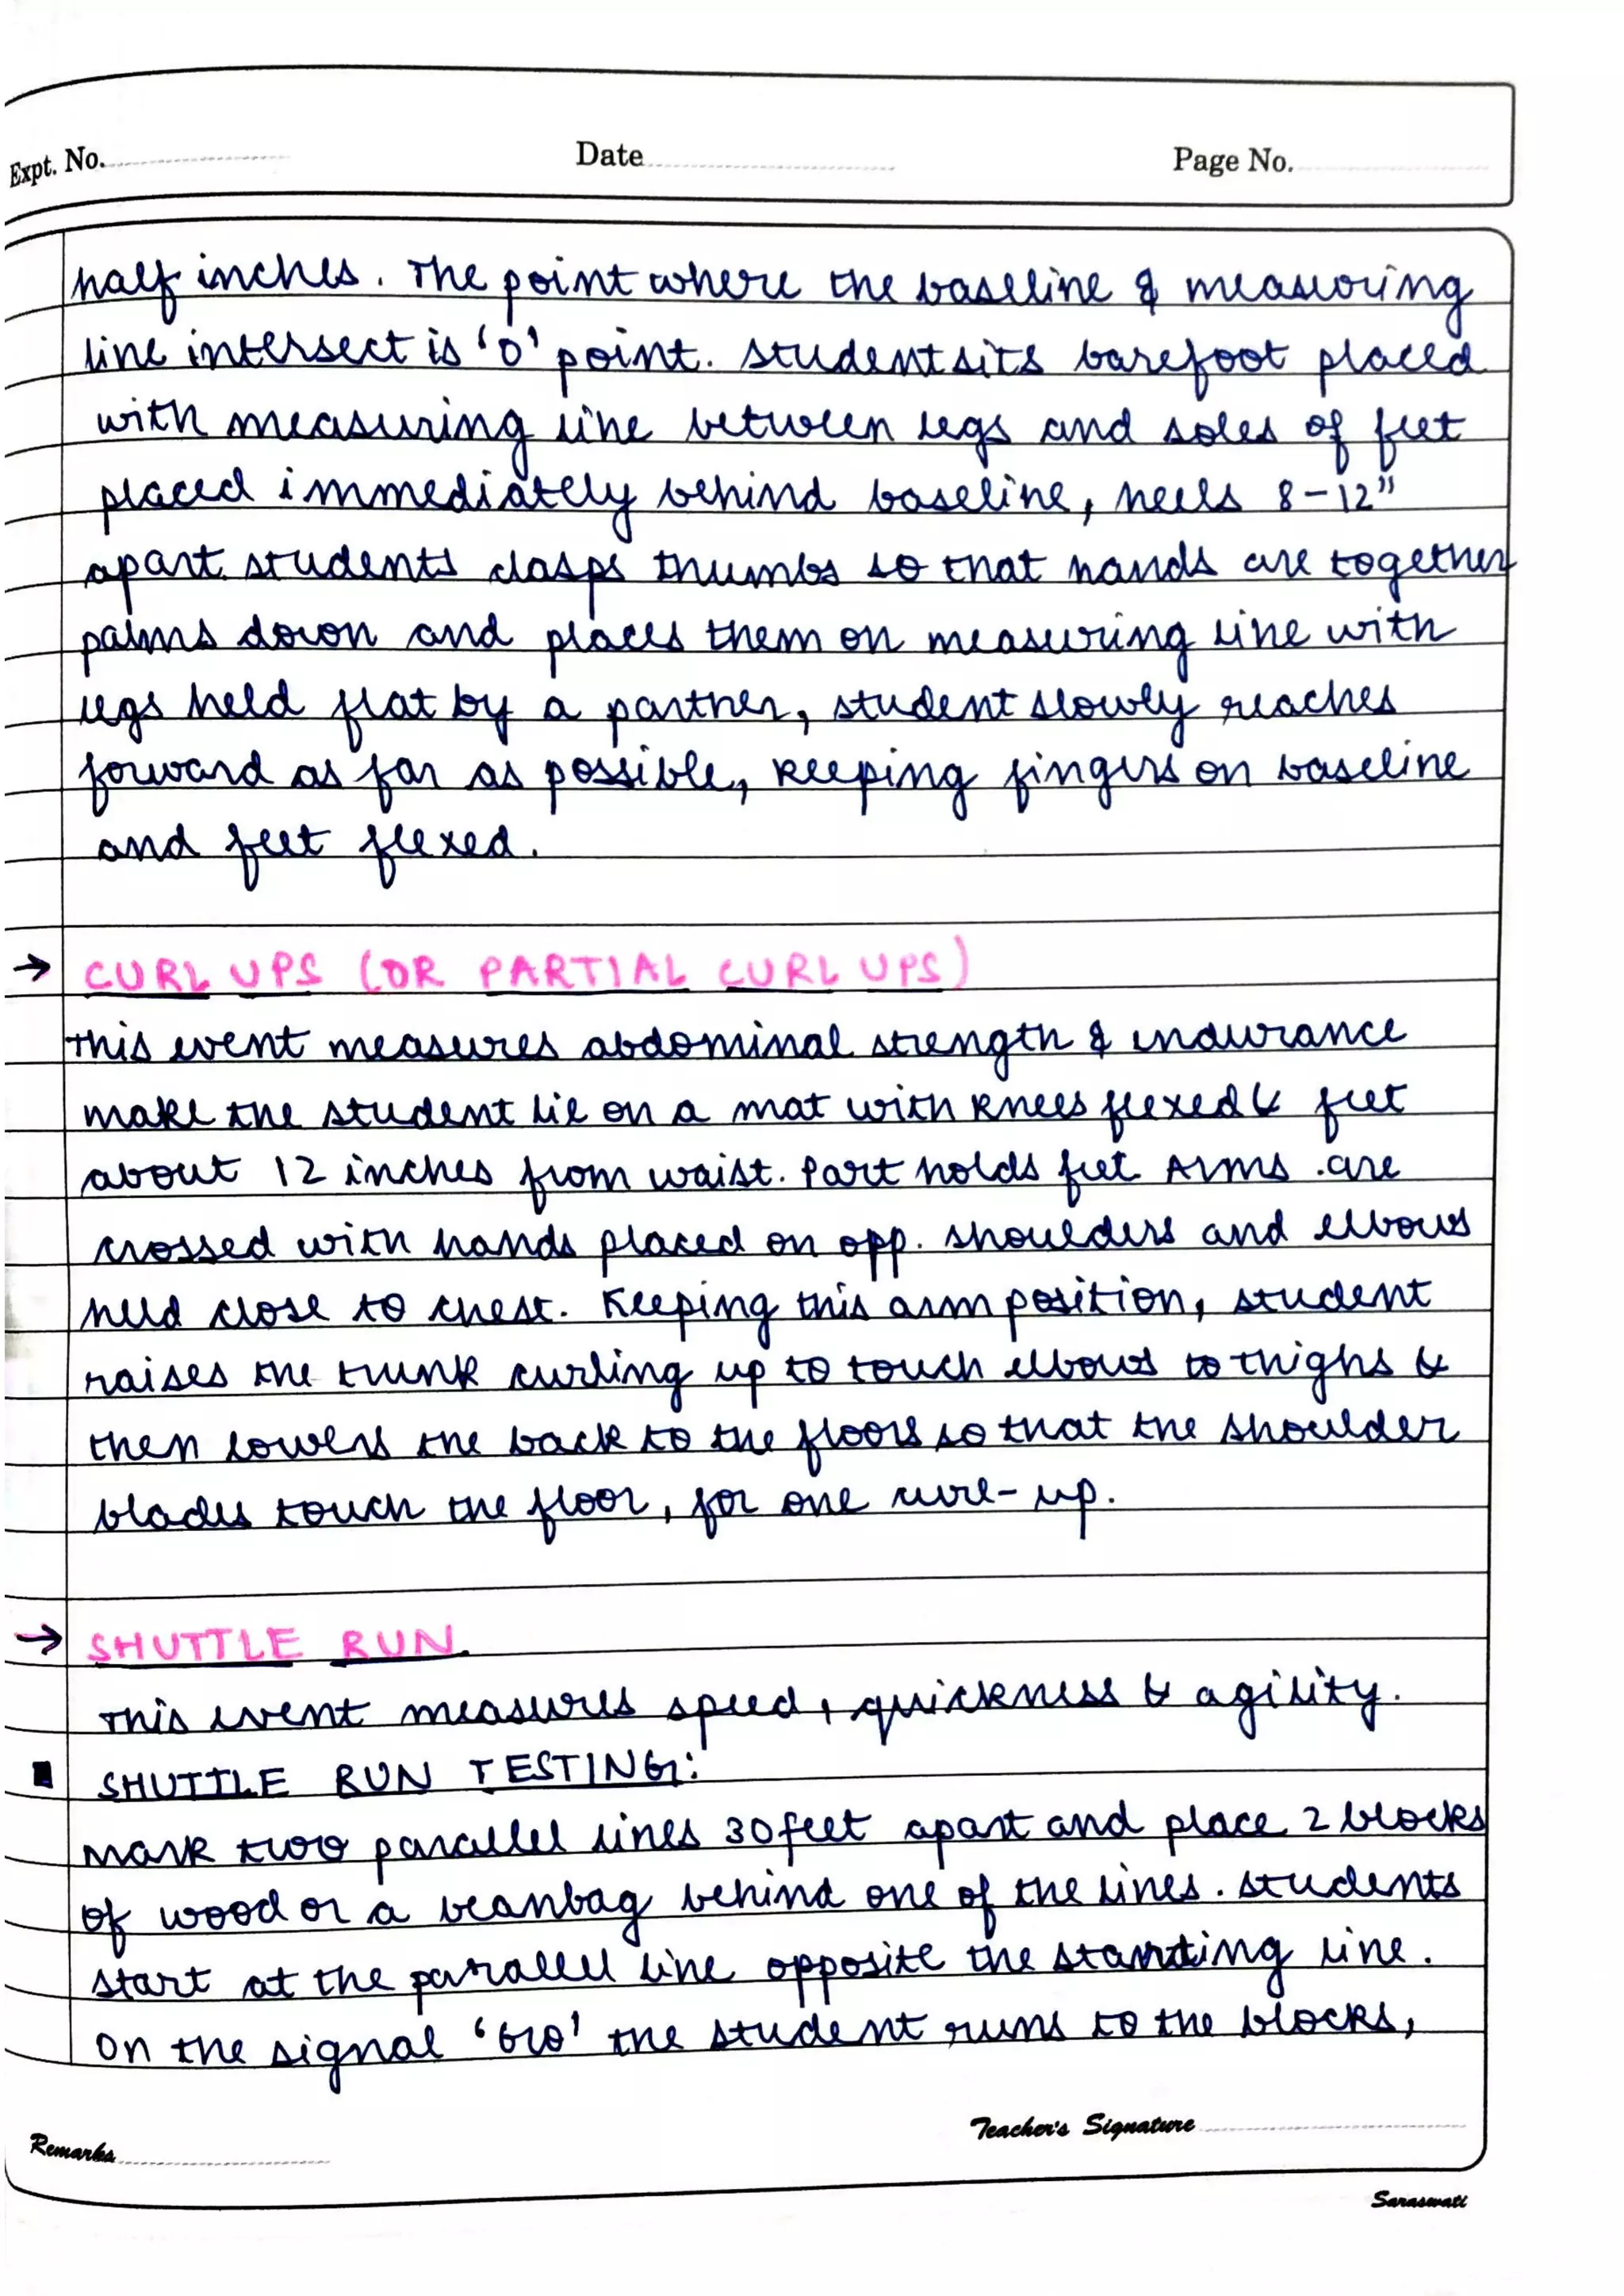 Expt. No.
Date
Page No.
half inches. The point where the baseline & measuring
line intersect is '0' point. Student sits barefoot placed
with measuring line between legs and soles of feet
placed immediately behind baseline, heels 8-12"
apart. students clasps thumbs so that hands are together
palms down and places them on measuring line with
legs held flat by a partner, student slowly reaches
forward as far as possible, keeping fingers on baseline
and feet flexed.
→ CURL UPS (OR PARTIAL CURL UPS)
This event measures abdominal strength & endurance
make the student lie on a mat with knees flexed & feet
about 12 inches from waist. Part holds feet Arms are
crossed with hands placed on opp. shoulders and elbows
held close to chest. Keeping this arm position, student
raises the trunk curling up to touch elbows to thighs &
then lowers the back to the floors so that the shoulder
blades touch the floor, for one curl-up.
→ SHUTTLE RUN
This event measures speed, quickness & agility.
SHUTTLE RUN TESTING:
Mark two parallel lines 30 feet apart and place 2 blocks
of wood or a beanbag behind one of the lines. Students
start at the parallel line opposite the standing line.
On the signal 'Go' the student runs to the blocks,
Teacher's Signature
Remarks
Saraswati